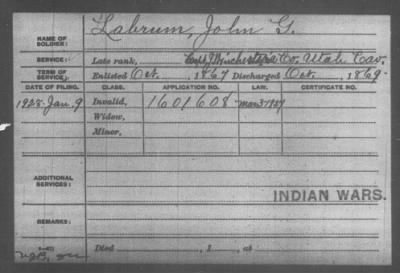 NAME OF SOLDIER: Labrum, John G.
SERVICE: Late rank, Capt Winchester's Co, Utah Cav.
TERM OF SERVICE: Enlisted Oct., 1867 Discharged Oct., 1869.
DATE OF FILING. CLASS. APPLICATION NO. LAW. CERTIFICATE NO.
1928-Jan. 9 Invalid, 1601608 Mar 3-1927
Widow,
Minor,
ADDITIONAL SERVICES:
INDIAN WARS.
REMARKS:
Died , 1 , at